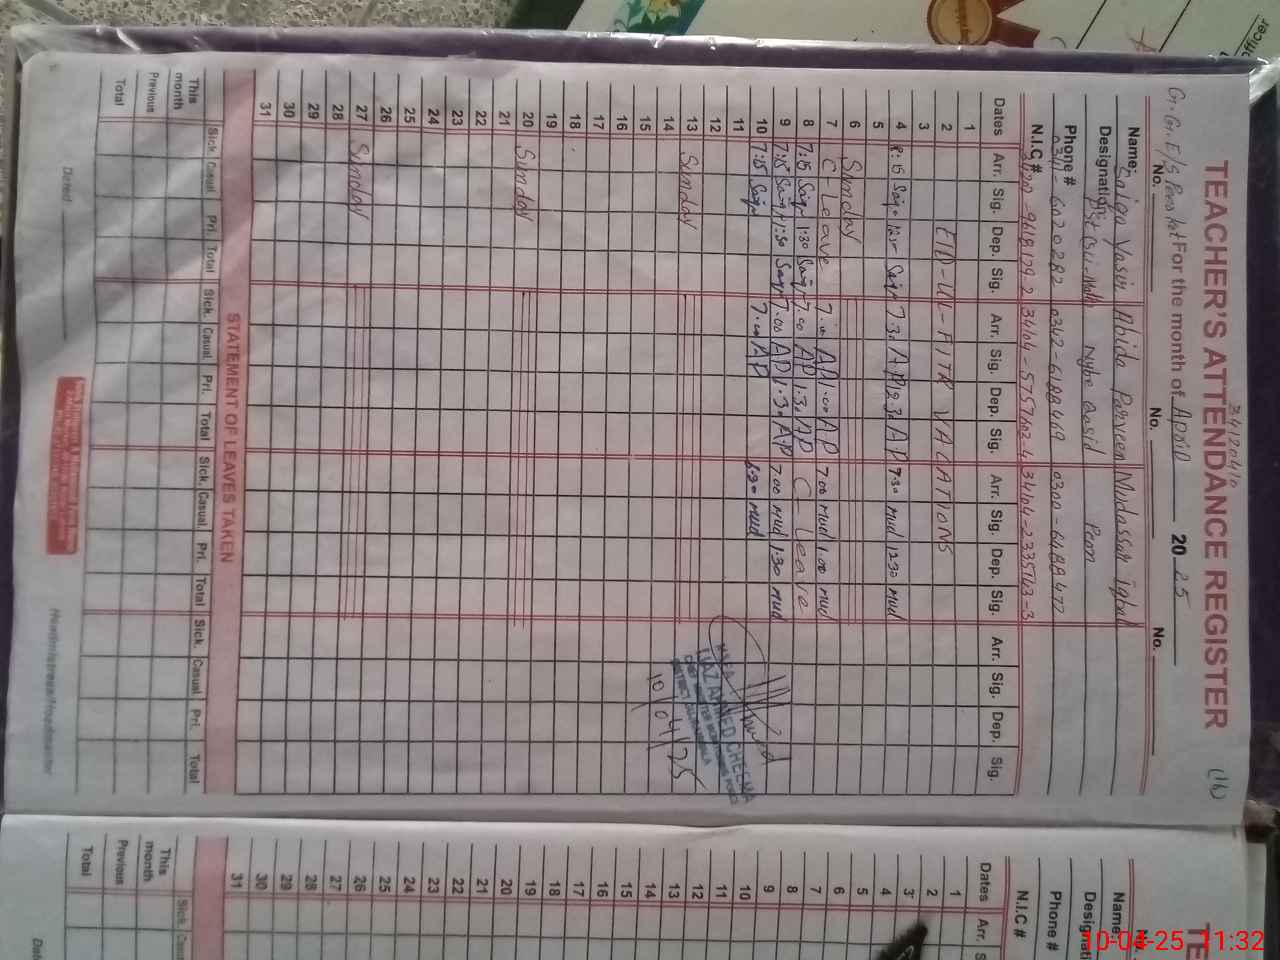 TEACHER'S ATTENDANCE REGISTER
34120410
(16)
For the month of April 2025
No. No. No. No.
Name: Saiqa Yasin Abida Parveen Mudassar Iqbal
Designation: Qasid
Phone # 0342-6188469 0300-6488472
N.I.C #
Dates Arr. Sig. Dep. Sig. Arr. Sig. Dep. Sig. Arr. Sig. Dep. Sig. Arr. Sig. Dep. Sig.
1
2 EID-UL-FITR VACATIONS
3
4 7:30 AP 12:30 AP 7:30 mud 12:30 mud
5
6 Sunday
7 C-Leave 7:00 AP 1:00 AP 7:00 mud 1:00 mud
8 7:15 Saiqa 1:30 Saiqa 7:00 AP 1:30 AP C leave
9 7:15 Saiqa 1:30 Saiqa 7:00 AP 1:30 AP 7:00 mud 1:30 mud
10 7:15 Saiqa 7:00 AP mud
11
12
13 Sunday
14
15
16
17
18
19
20 Sunday
21
22
23
24
25
26
27 Sunday
28
29
30
31
IJAZ AHMED CHEEMA
10/04/25
STATEMENT OF LEAVES TAKEN
Sick. Casual. Pri. Total Sick. Casual. Pri. Total Sick. Casual. Pri. Total Sick. Casual Pri. Total
This month
Previous
Total
Dated
Headmistress/Headmaster
officer
TE
No.
Name:
Phone #
N.I.C #
Dates Arr.
1
2
3
4
5
6
7
8
9
10
11
12
13
14
15
16
17
18
19
20
21
22
23
24
25
26
27
28
29
30
31
Sick.
This month
Previous
Total
10-04-25 11:32